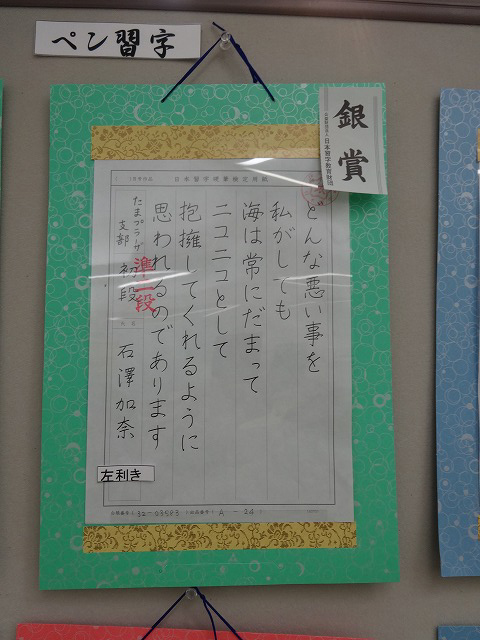 ペン習字
銀賞
公益財団法人 日本習字教育財団
日本習字硬筆検定用紙
どんな悪い事を
私がしても
海は常にだまって
ニコニコとして
抱擁してくれるように
思われるのであります
たまプラーザ
支部
初段
準二段
石澤加奈
左利き
A - 24